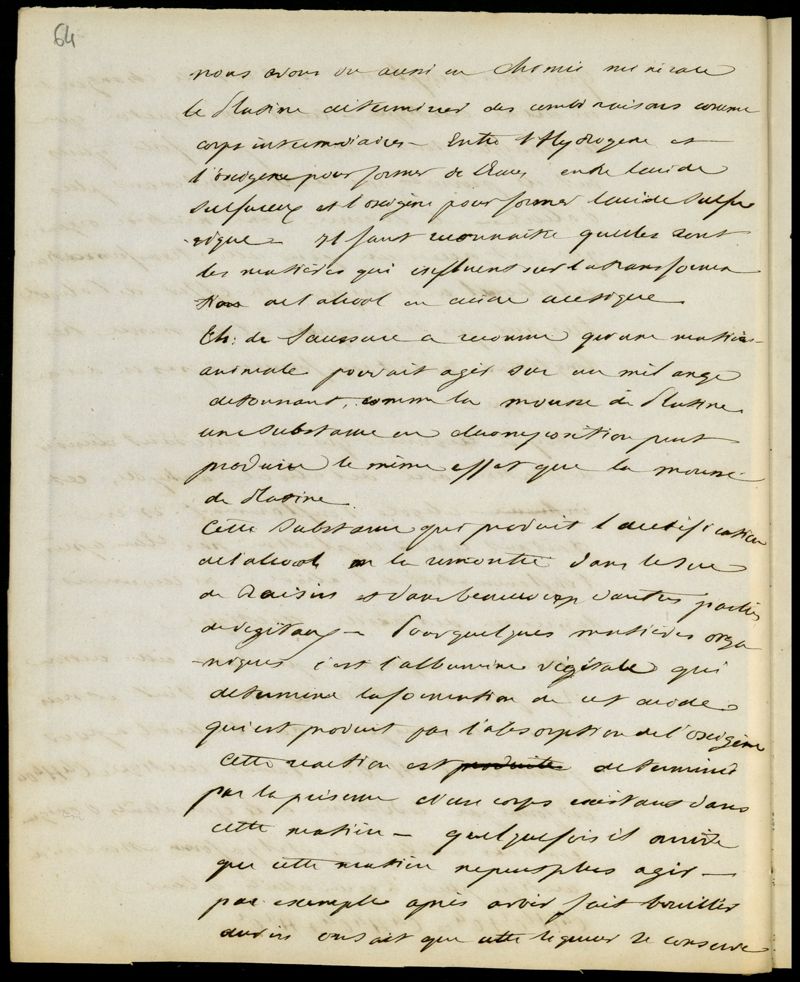 64
nous avons vu aussi en chimie minérale
le Platine déterminer des combinaisons comme
corps intermédiaires – Entre l'Hydrogène et
l'oxigène pour former de l'Eau, entre l'acide
sulfureux et l'oxigène pour former l'acide sulfu
rique – Il faut reconnaître quelles sont
les matières qui influent sur la transforma
tion de l'alcool en acide acétique
de Saussure a reconnu qu'une matière
animale pouvait agir sur un mélange
détonnant, comme la mousse de Platine
une substance en décomposition peut
produire le même effet que la mousse
de Platine
Cette substance qui produit l'acétification
de l'alcool on la remontre dans le suc
de Raisins et dans beaucoup d'autres parties
de végétaux – Pour quelques matières orga
niques c'est l'albumine végétale qui
détermine la formation de cet acide
qui est produit par l'absorption de l'oxigène
Cette réaction est produite déterminée
par la présence d'un corps existant dans
cette matière – quelquefois il arrive
que cette matière ne peut plus agir –
par exemple après avoir fait bouillir
du vin on sait que cette liqueur se conserve